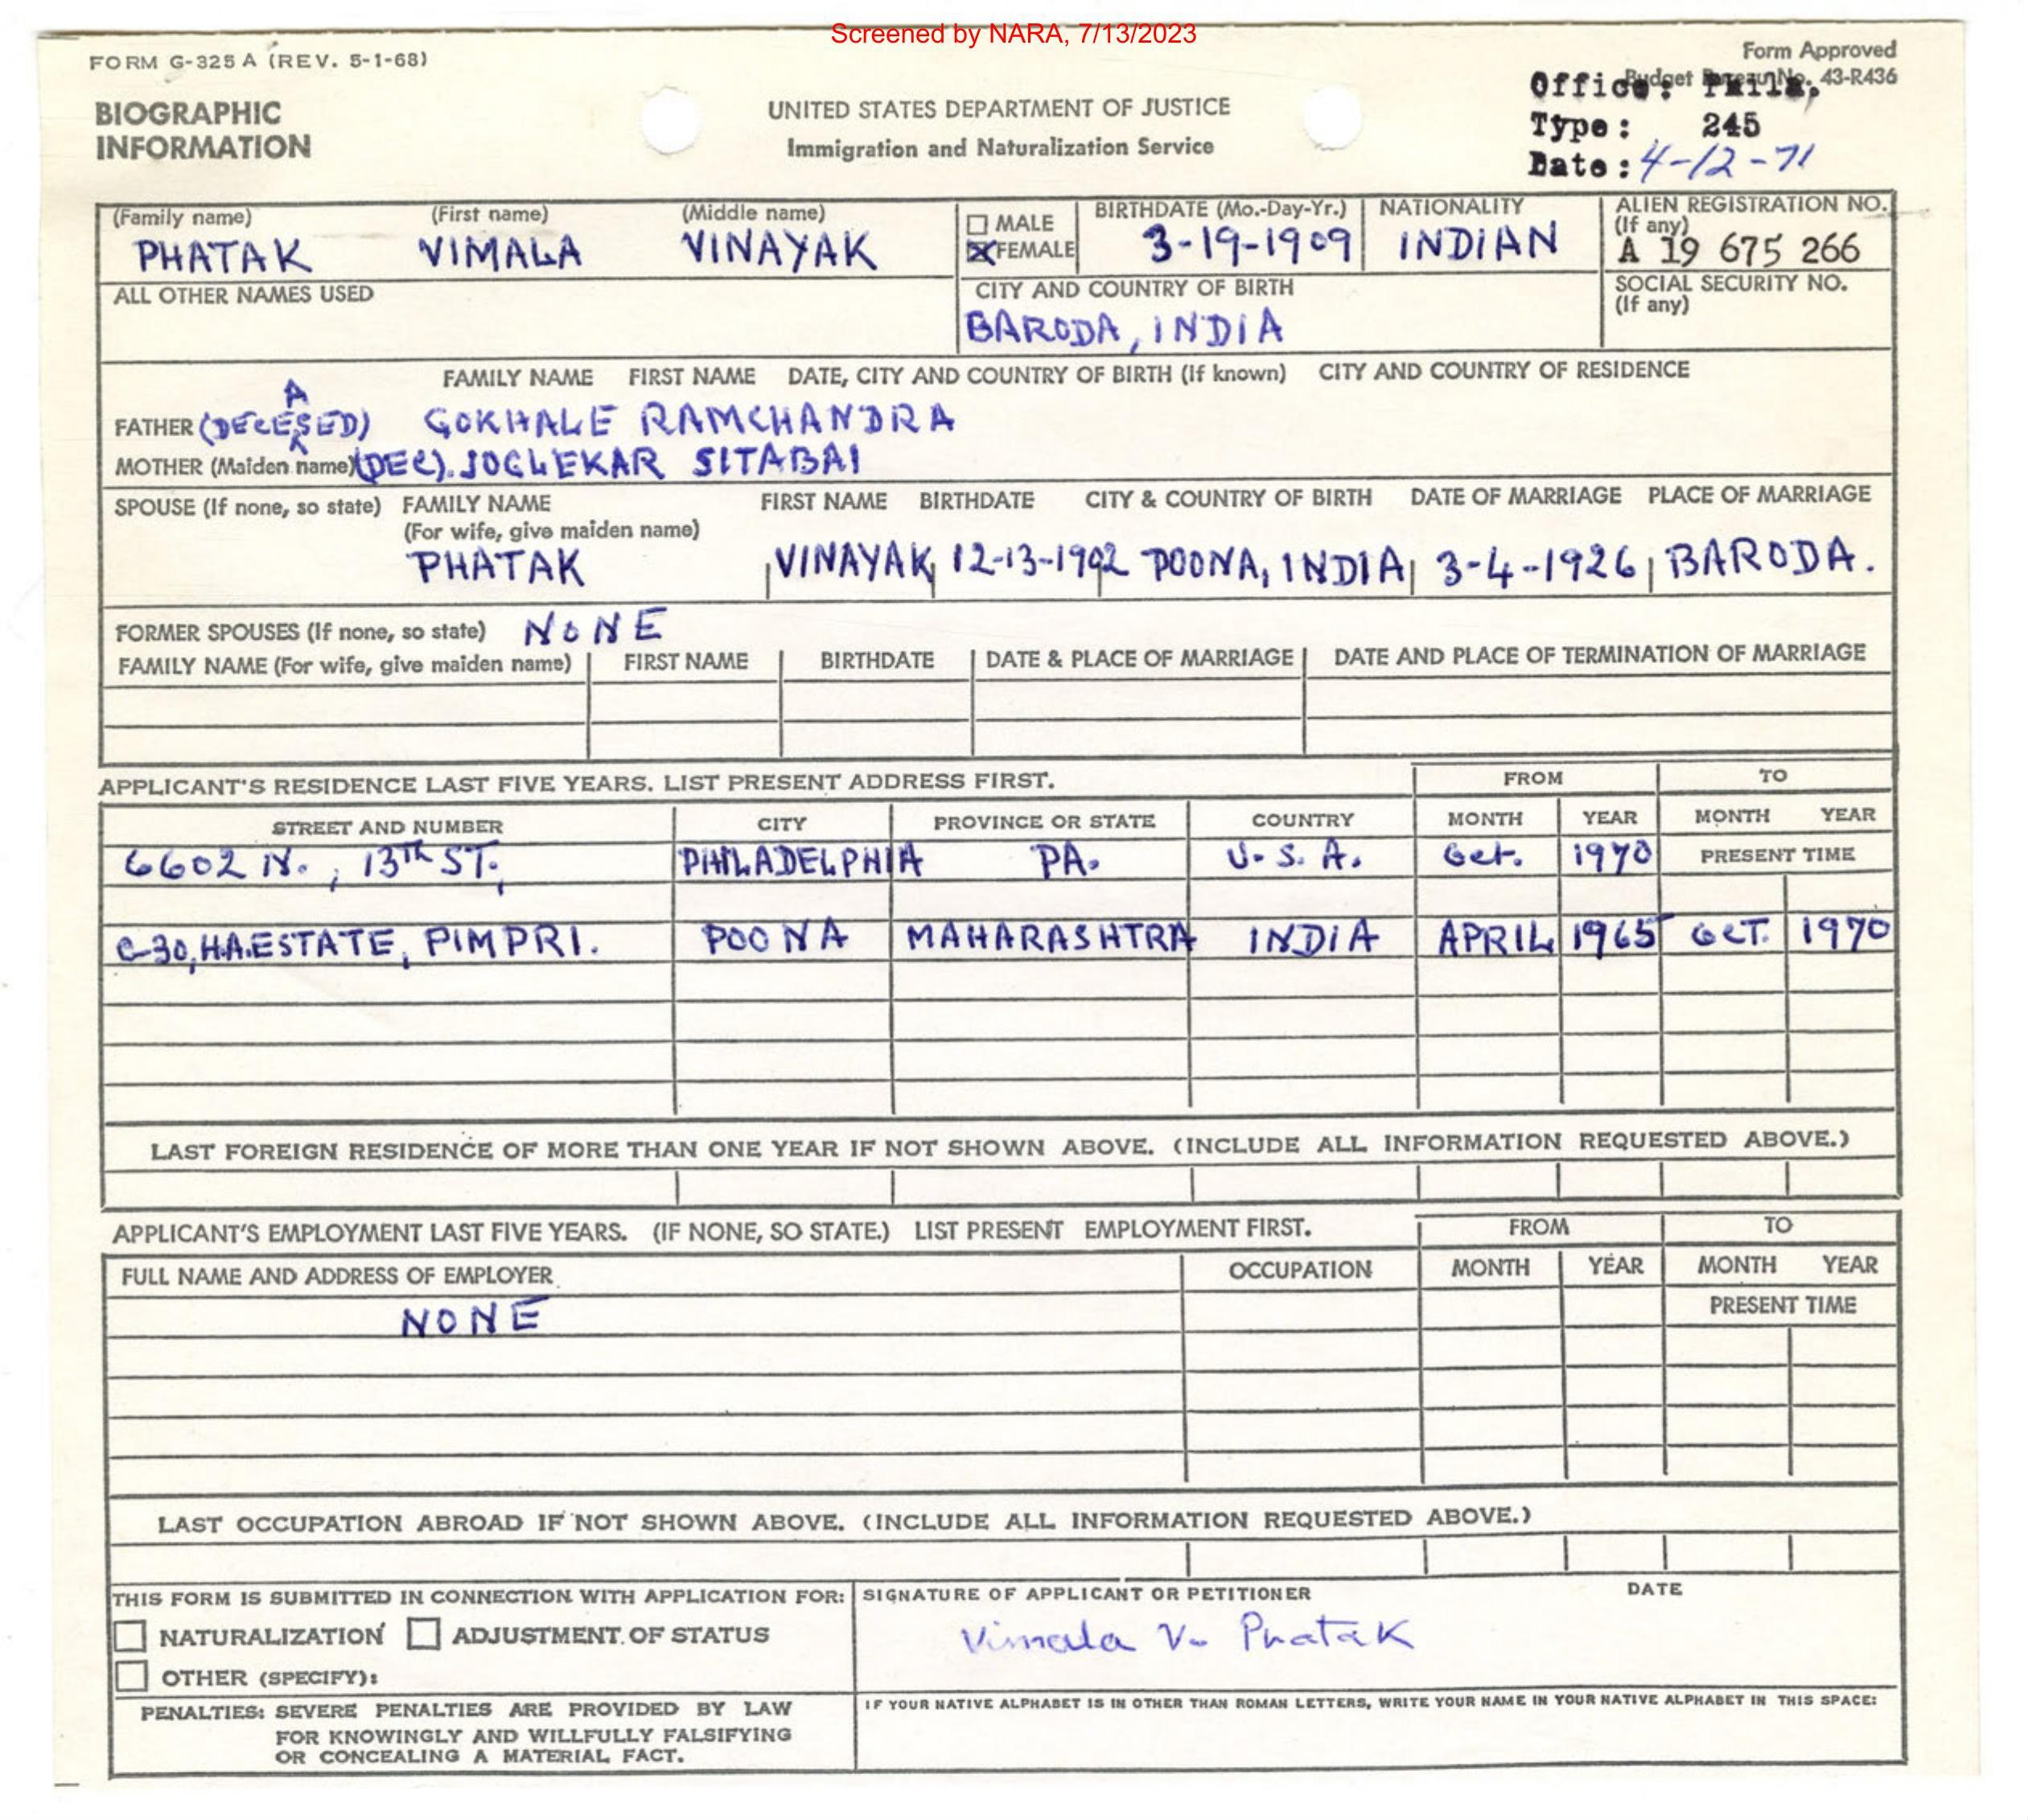 Screened by NARA, 7/13/2023
FORM G-325 A (REV. 5-1-68)
Form Approved
Budget Bureau No. 43-R436
BIOGRAPHIC
INFORMATION
UNITED STATES DEPARTMENT OF JUSTICE
Immigration and Naturalization Service
Office: Phila,
Type: 245
Date: 4-12-71
(Family name) (First name) (Middle name) MALE BIRTHDATE (Mo.-Day-Yr.) NATIONALITY ALIEN REGISTRATION NO.
(If any)
PHATAK VIMALA VINAYAK FEMALE 3-19-1909 INDIAN A 19 675 266
ALL OTHER NAMES USED CITY AND COUNTRY OF BIRTH SOCIAL SECURITY NO.
(If any)
BARODA, INDIA
FAMILY NAME FIRST NAME DATE, CITY AND COUNTRY OF BIRTH (If known) CITY AND COUNTRY OF RESIDENCE
A
FATHER (DECESED) GOKHALE RAMCHANDRA
MOTHER (Maiden name) (DEC). JOGLEKAR SITABAI
SPOUSE (If none, so state) FAMILY NAME FIRST NAME BIRTHDATE CITY & COUNTRY OF BIRTH DATE OF MARRIAGE PLACE OF MARRIAGE
(For wife, give maiden name)
PHATAK VINAYAK 12-13-1902 POONA, INDIA 3-4-1926 BARODA.
FORMER SPOUSES (If none, so state) NONE
FAMILY NAME (For wife, give maiden name) FIRST NAME BIRTHDATE DATE & PLACE OF MARRIAGE DATE AND PLACE OF TERMINATION OF MARRIAGE
APPLICANT'S RESIDENCE LAST FIVE YEARS. LIST PRESENT ADDRESS FIRST. FROM TO
STREET AND NUMBER CITY PROVINCE OR STATE COUNTRY MONTH YEAR MONTH YEAR
6602 N., 13TH ST., PHILADELPHIA PA. U.S.A. Oct. 1970 PRESENT TIME
C-30, H.A. ESTATE, PIMPRI. POONA MAHARASHTRA INDIA APRIL 1965 OCT. 1970
LAST FOREIGN RESIDENCE OF MORE THAN ONE YEAR IF NOT SHOWN ABOVE. (INCLUDE ALL INFORMATION REQUESTED ABOVE.)
APPLICANT'S EMPLOYMENT LAST FIVE YEARS. (IF NONE, SO STATE.) LIST PRESENT EMPLOYMENT FIRST. FROM TO
FULL NAME AND ADDRESS OF EMPLOYER OCCUPATION MONTH YEAR MONTH YEAR
NONE PRESENT TIME
LAST OCCUPATION ABROAD IF NOT SHOWN ABOVE. (INCLUDE ALL INFORMATION REQUESTED ABOVE.)
THIS FORM IS SUBMITTED IN CONNECTION WITH APPLICATION FOR: SIGNATURE OF APPLICANT OR PETITIONER DATE
NATURALIZATION ADJUSTMENT OF STATUS Vimala V. Phatak
OTHER (SPECIFY):
PENALTIES: SEVERE PENALTIES ARE PROVIDED BY LAW
FOR KNOWINGLY AND WILLFULLY FALSIFYING
OR CONCEALING A MATERIAL FACT.
IF YOUR NATIVE ALPHABET IS IN OTHER THAN ROMAN LETTERS, WRITE YOUR NAME IN YOUR NATIVE ALPHABET IN THIS SPACE: